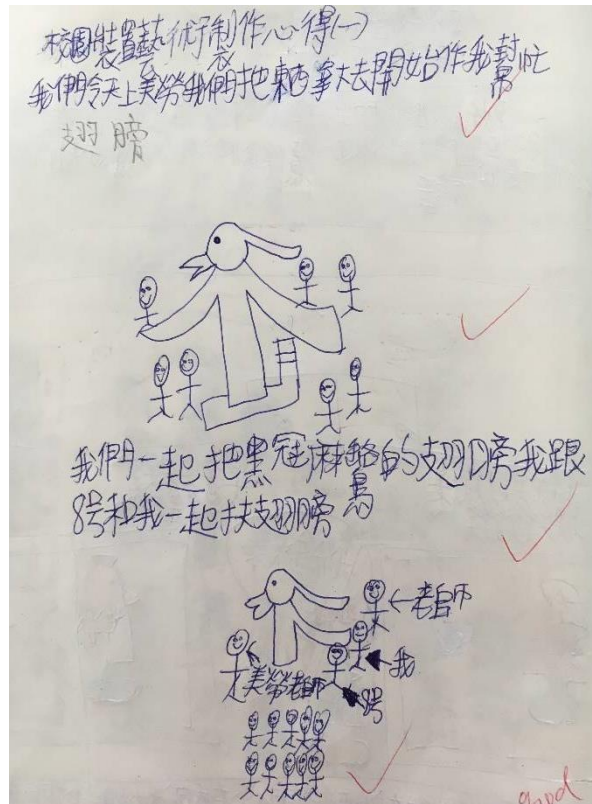 校園裝置藝術制作心得(一)
我們今天上美勞我們把東西拿大去開始作我幫忙
翅膀
我們一起把黑冠麻鷺的翅膀我跟
8号和我一起扶翅膀
←老師
←我
美勞老師
8号
good